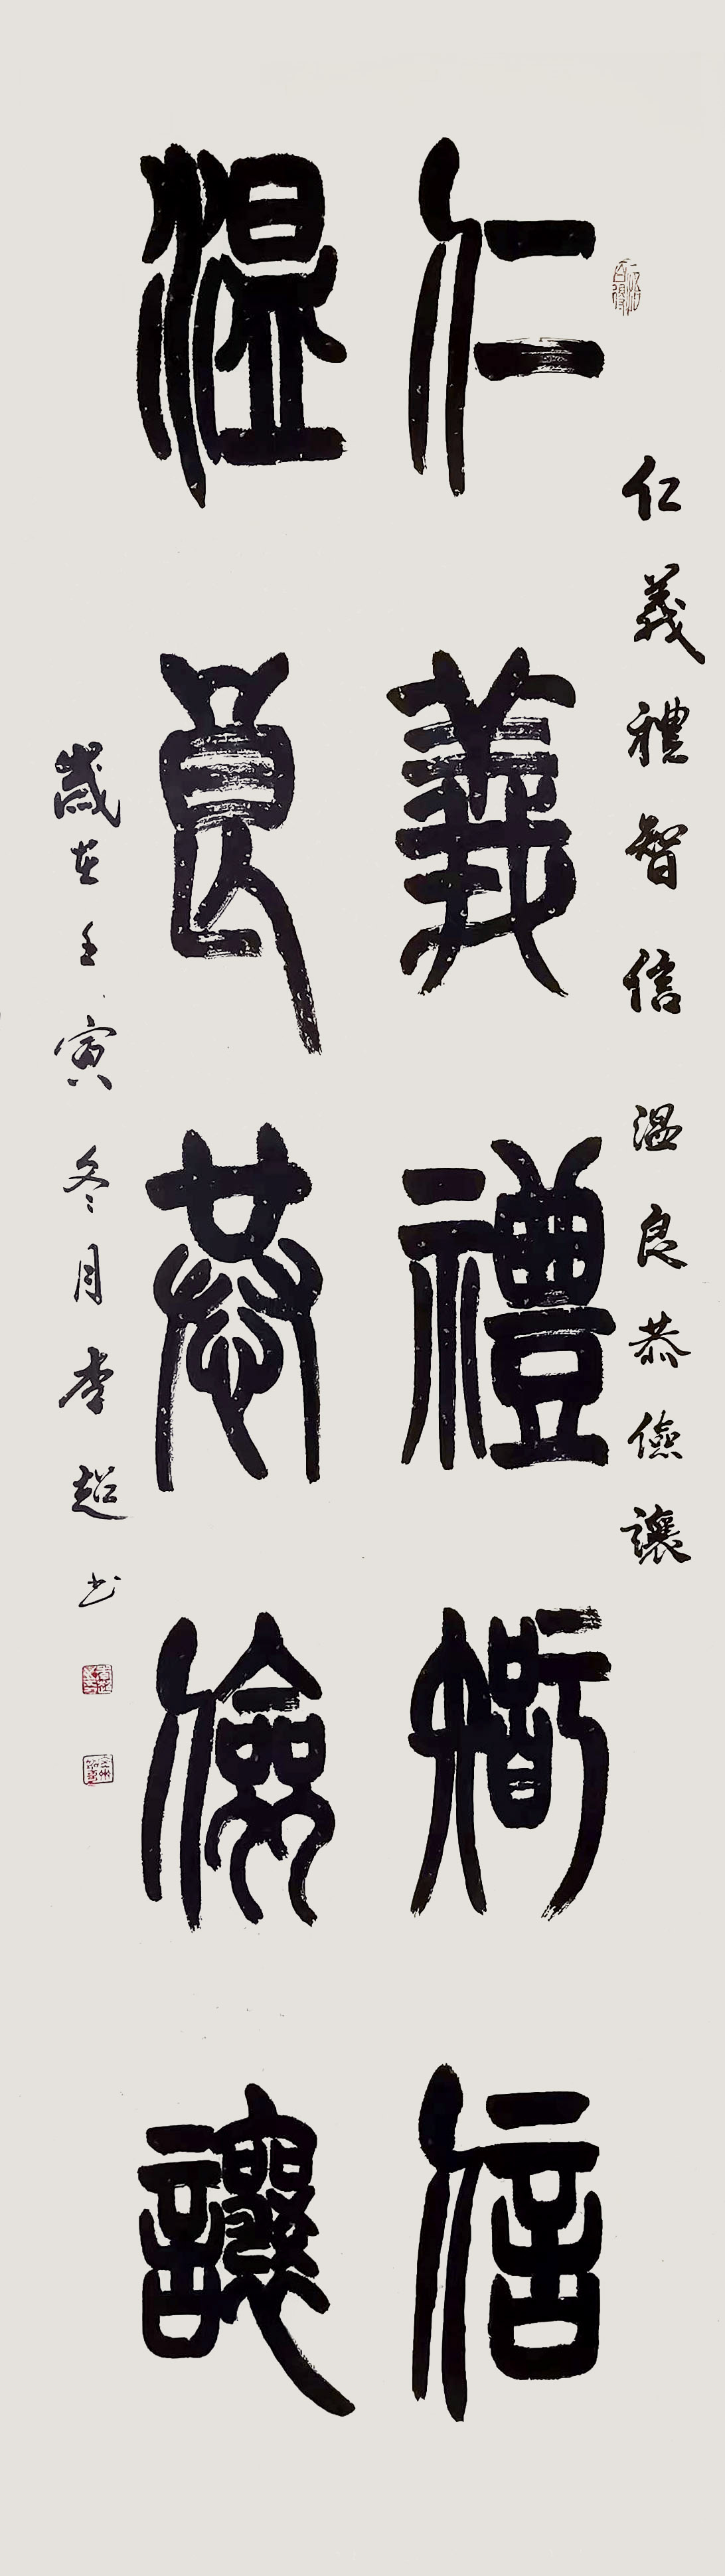 仁義禮智信温良恭儉讓
仁義禮智信
温良恭儉讓
歲在壬寅冬月李超书